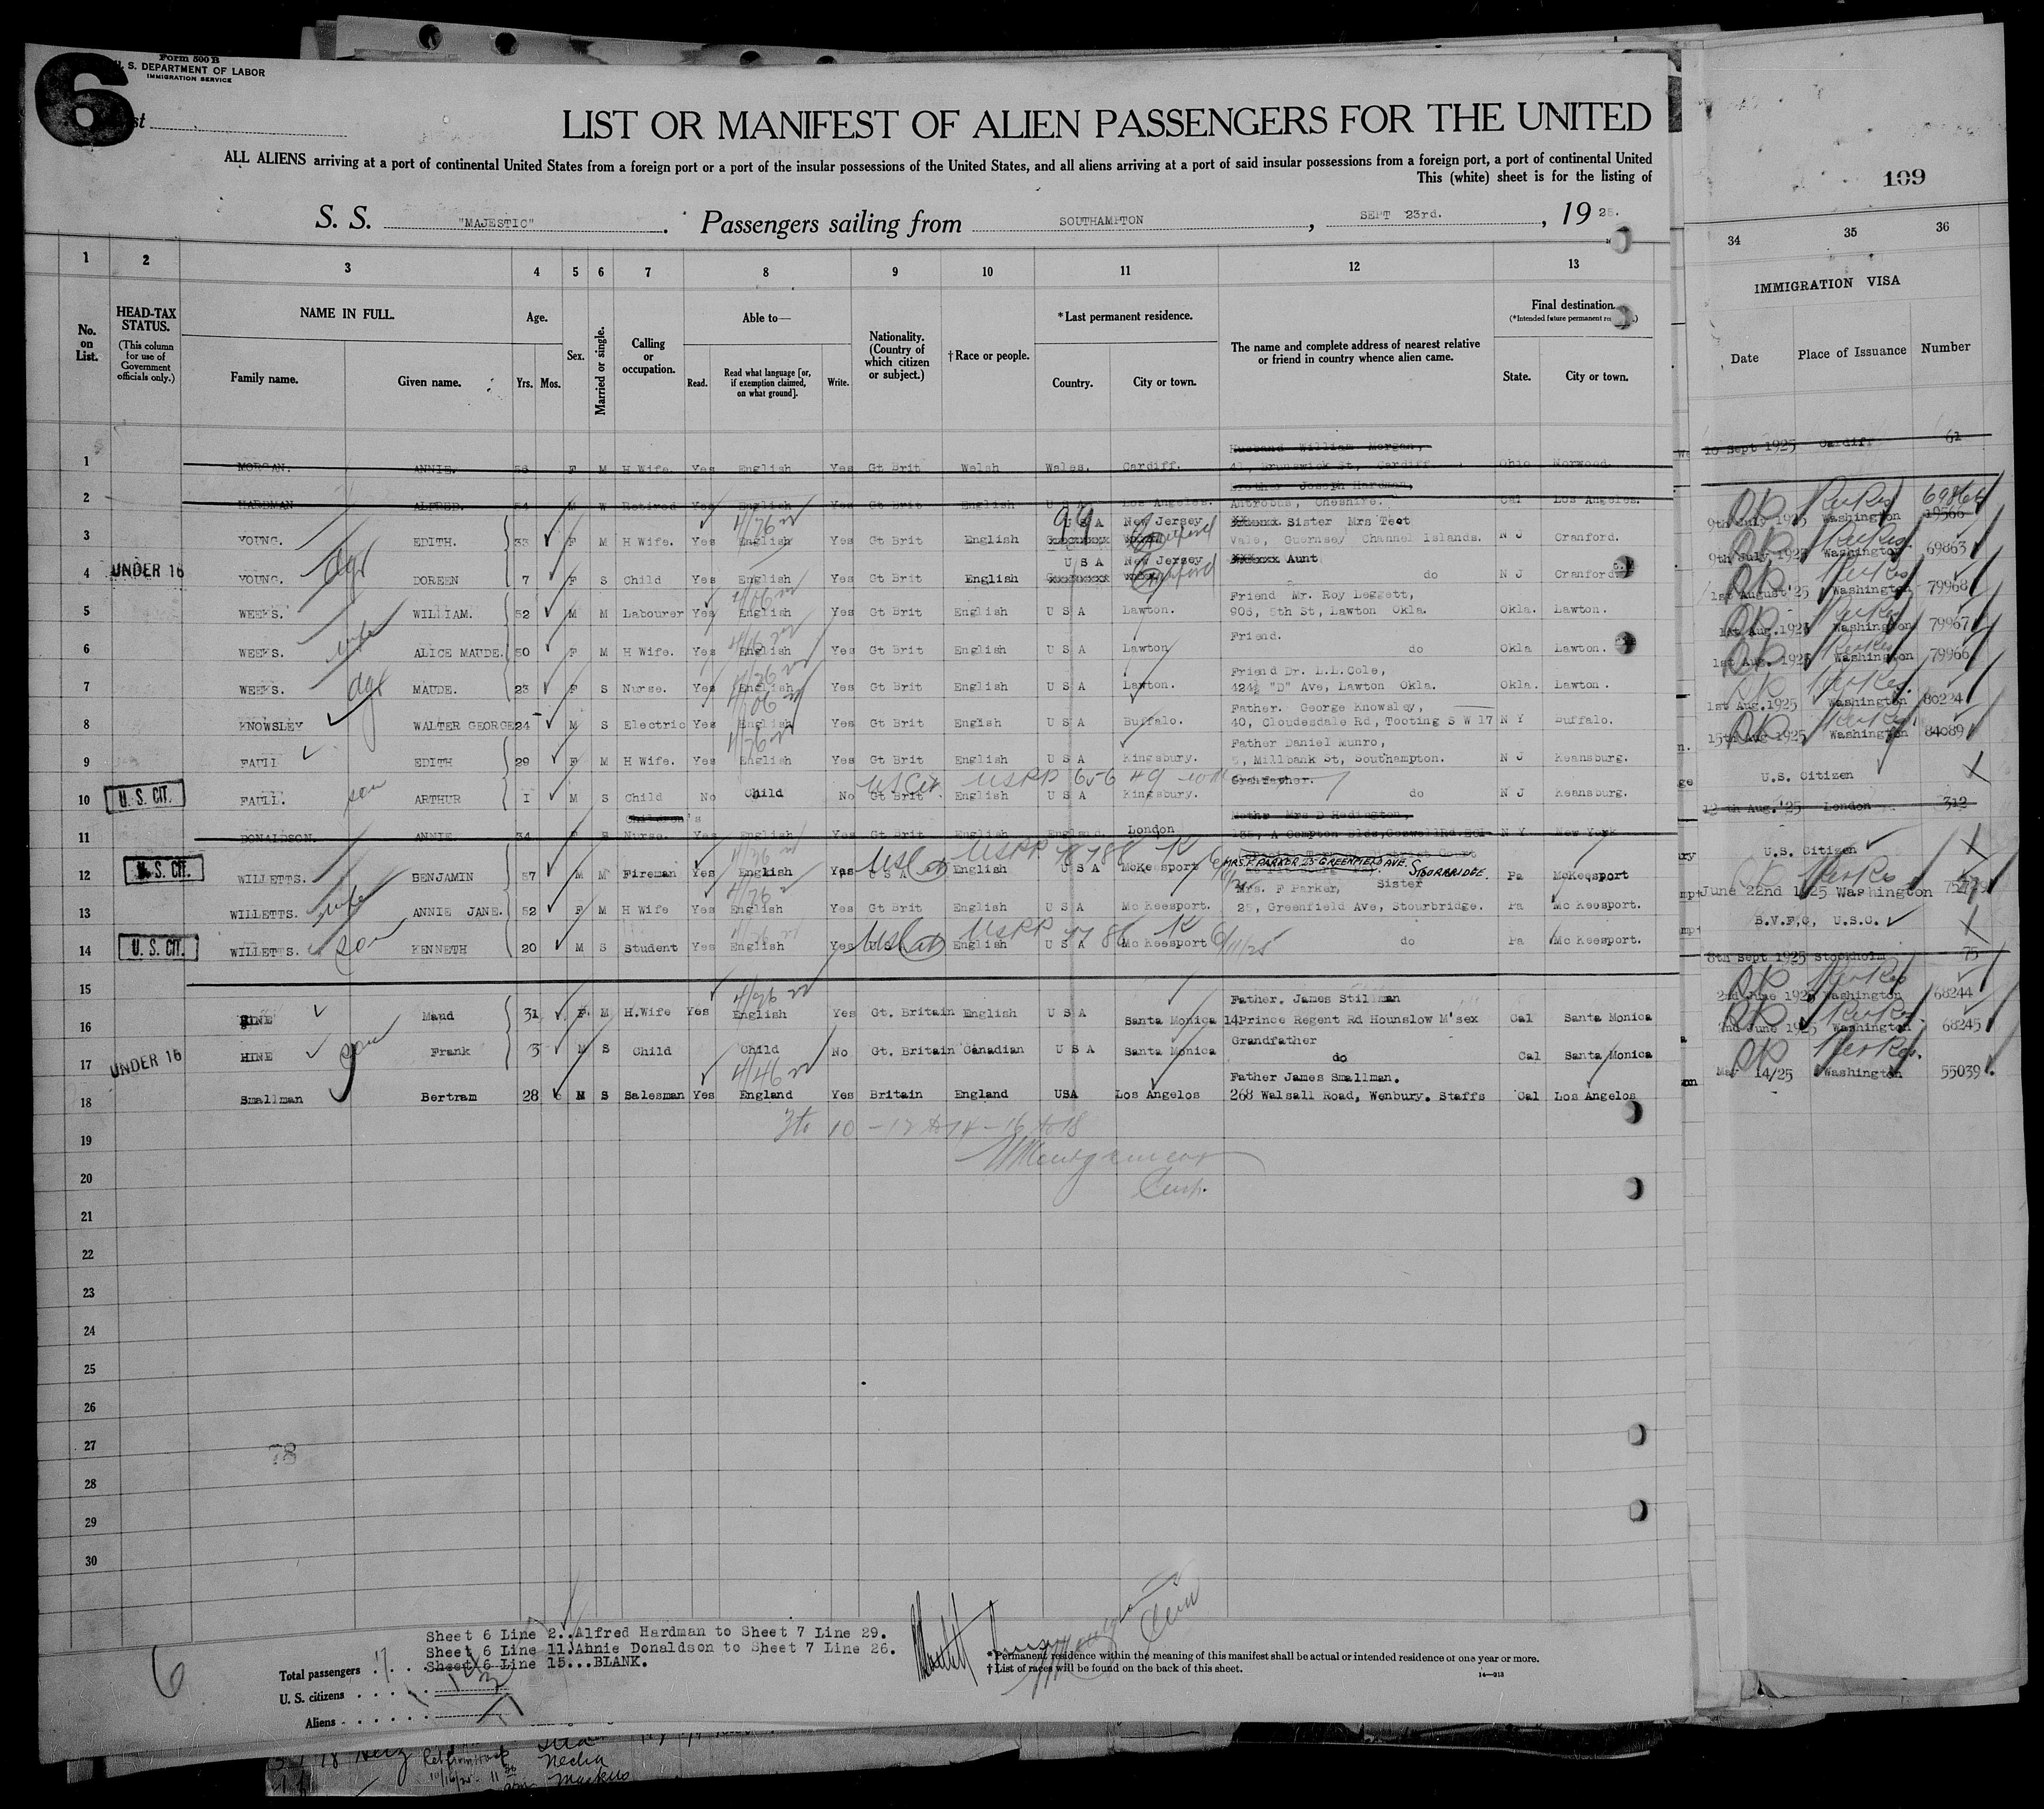 6
Form 500 B
U. S. DEPARTMENT OF LABOR
IMMIGRATION SERVICE
LIST OR MANIFEST OF ALIEN PASSENGERS FOR THE UNITED
ALL ALIENS arriving at a port of continental United States from a foreign port or a port of the insular possessions of the United States, and all aliens arriving at a port of said insular possessions from a foreign port, a port of continental United
This (white) sheet is for the listing of
109
S. S. "MAJESTIC". Passengers sailing from SOUTHAMPTON, SEPT 23rd., 1925.
1 2 3 4 5 6 7 8 9 10 11 12 13 34 35 36
No. on List.
HEAD-TAX STATUS.
(This column for use of Government officials only.)
NAME IN FULL.
Family name. Given name.
Age.
Yrs. Mos.
Sex.
Married or single.
Calling or occupation.
Able to—
Read. Read what language [or, if exemption claimed, on what ground]. Write.
Nationality. (Country of which citizen or subject.)
†Race or people.
*Last permanent residence.
Country. City or town.
The name and complete address of nearest relative or friend in country whence alien came.
Final destination.
(*Intended future permanent
State. City or town.
IMMIGRATION VISA
Date Place of Issuance Number
Husband William Morgan,
1 MORGAN. ANNIE. F M H Wife. Yes English Yes Gt Brit Welsh Wales. Cardiff. 41, Brunswick St, Cardiff Ohio Norwood. 10 Sept 1925 Cardiff 61
Brother Joseph Hardman,
2 HARDMAN ALFRED. 54 M W Retired Yes English Yes Gt Brit English U S A Los Angeles. Antrobus, Cheshire. Cal Los Angeles.
U S A New Jersey Sister Mrs Teot
3 YOUNG. EDITH. 33 F M H Wife. Yes English Yes Gt Brit English Vale, Guernsey Channel Islands. N J Cranford. 9th July 1925 Washington 19566 69866
U S A New Jersey Aunt
4 UNDER 16 YOUNG. DOREEN 7 F S Child Yes English Yes Gt Brit English do N J Cranford. 9th July 1925 Washington 69863
Friend Mr. Roy Leggett,
5 WEEKS. WILLIAM. 52 M M Labourer Yes English Yes Gt Brit English U S A Lawton. 905, 5th St, Lawton Okla. Okla. Lawton. 1st August '25 Washington 79968
Friend.
6 WEEKS. wife ALICE MAUDE. 50 F M H Wife. Yes English Yes Gt Brit English U S A Lawton do Okla Lawton. 1st Aug. 1925 Washington 79967
Friend Dr. L.L.Cole,
7 WEEKS. MAUDE. 23 F S Nurse. Yes English Yes Gt Brit English U S A Lawton. 424½ "D" Ave, Lawton Okla. Okla. Lawton. 1st Aug. 1925 Washington 79966
Father. George Knowsley,
8 KNOWSLEY WALTER GEORGE 24 M S Electric Yes English Yes Gt Brit English U S A Buffalo. 40, Cloudesdale Rd, Tooting S W 17 N Y Buffalo. 1st Aug. 1925 Washington 80224
Father Daniel Munro,
9 FAULL EDITH 29 F M H Wife. Yes English Yes Gt Brit English U S A Kingsbury. 5, Millbank St, Southampton. N J Keansburg. 15th Aug 1925 Washington 84089
Granfather.
10 U. S. CIT. FAULL. son ARTHUR I M S Child No Child No Gt Brit English U S A Kingsbury. do N J Keansburg. U.S. Citizen
Children's Mothr Mrs D Hadington,
11 DONALDSON. ANNIE 34 F S Nurse. Yes English Yes Gt Brit English England. London N Y New York 12 th Aug.'25 London 312
MRS. F PARKER 25 GREENFIELD AVE. STOURBRIDGE.
12 U. S. CIT. WILLETTS. BENJAMIN 57 M M Fireman Yes English Yes U S A English U S A McKeesport Pa McKeesport U.S. Citizen
Mrs. F Parker, Sister
13 WILLETTS. wife ANNIE JANE. 52 F M H Wife Yes English Yes Gt Brit English U S A Mc Keesport. 25, Greenfield Ave, Stourbridge. Pa Mc Keesport. June 22nd 1925 Washington
14 U. S. CIT. WILLETTS. son KENNETH 20 M S Student Yes English Yes U S A English U S A Mc Keesport do Pa Mc Keesport. B.V.F.C, U.S.C.
15 8th Sept 1925 Stockholm 75
Father. James Stillman
16 HINE Maud 31 F M H.Wife Yes English Yes Gt. Britain English U S A Santa Monica 14Prince Regent Rd Hounslow M'sex Cal Santa Monica 2nd June 1925 Washington 68244
Grandfather
17 UNDER 16 HINE son Frank 3 M S Child Child No Gt. Britain Canadian U S A Santa Monica do Cal Santa Monica 2nd June 1925 Washington 68245
Father James Smallman.
18 Smallman Bertram 28 M S Salesman Yes England Yes Britain England USA Los Angelos 268 Walsall Road, Wenbury. Staffs Cal Los Angelos Mar 14/25 Washington 55039
19 3 to 10 - 12 to 14 - 16 to 18
20
21
22
23
24
25
26
27
78
28
29
30
Sheet 6 Line 2..Alfred Hardman to Sheet 7 Line 29.
Sheet 6 Line 11.Annie Donaldson to Sheet 7 Line 26.
Sheet 6 Line 15...BLANK.
6
Total passengers
U. S. citizens
Aliens
*Permanent residence within the meaning of this manifest shall be actual or intended residence of one year or more.
†List of races will be found on the back of this sheet.
14—213